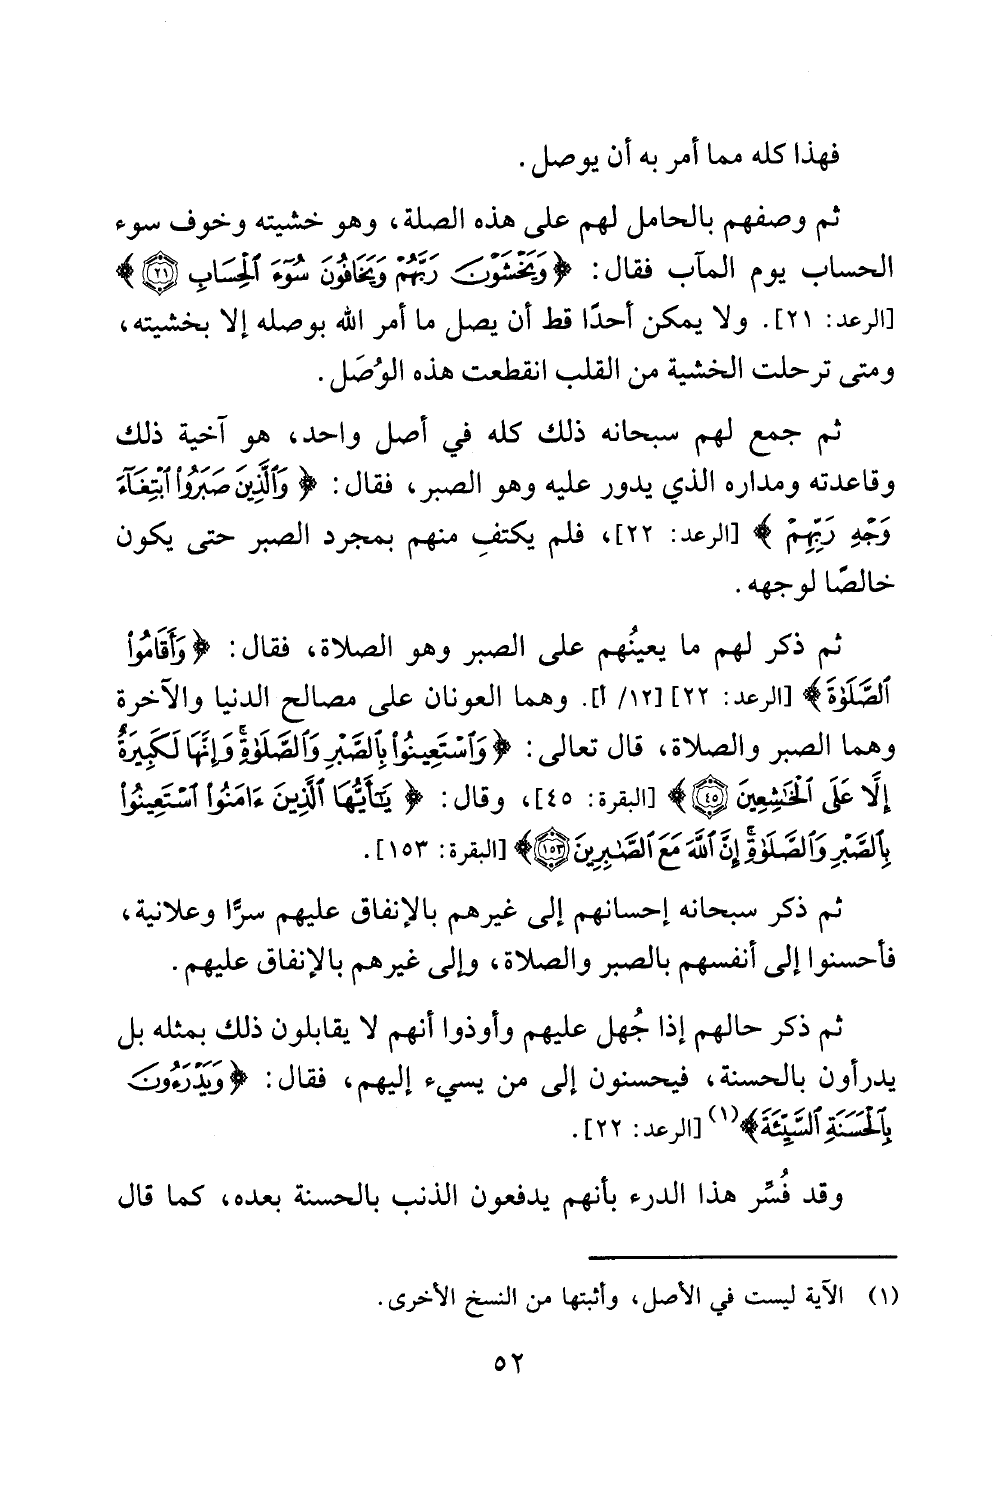 فهذا كله مما أمر به أن يوصل.
ثم وصفهم بالحامل لهم على هذه الصلة، وهو خشيته وخوف سوء
الحساب يوم المآب فقال: ﴿وَيَخْشَوْنَ رَبَّهُمْ وَيَخَافُونَ سُوٓءَ ٱلْحِسَابِ ۝٢١﴾
[الرعد: ٢١]. ولا يمكن أحدًا قط أن يصل ما أمر الله بوصله إلا بخشيته،
ومتى ترحلت الخشية من القلب انقطعت هذه الوُصَل.
ثم جمع لهم سبحانه ذلك كله في أصل واحد، هو آخية ذلك
وقاعدته ومداره الذي يدور عليه وهو الصبر، فقال: ﴿وَٱلَّذِينَ صَبَرُوا۟ ٱبْتِغَآءَ
وَجْهِ رَبِّهِمْ﴾ [الرعد: ٢٢]، فلم يكتفِ منهم بمجرد الصبر حتى يكون
خالصًا لوجهه.
ثم ذكر لهم ما يعينُهم على الصبر وهو الصلاة، فقال: ﴿وَأَقَامُوا۟
ٱلصَّلَوٰةَ﴾ [الرعد: ٢٢] [١٢/ أ]. وهما العونان على مصالح الدنيا والآخرة
وهما الصبر والصلاة، قال تعالى: ﴿وَٱسْتَعِينُوا۟ بِٱلصَّبْرِ وَٱلصَّلَوٰةِ ۚ وَإِنَّهَا لَكَبِيرَةٌ
إِلَّا عَلَى ٱلْخَـٰشِعِينَ ۝٤٥﴾ [البقرة: ٤٥]، وقال: ﴿يَـٰٓأَيُّهَا ٱلَّذِينَ ءَامَنُوا۟ ٱسْتَعِينُوا۟
بِٱلصَّبْرِ وَٱلصَّلَوٰةِ ۚ إِنَّ ٱللَّهَ مَعَ ٱلصَّـٰبِرِينَ ۝١٥٣﴾ [البقرة: ١٥٣].
ثم ذكر سبحانه إحسانهم إلى غيرهم بالإنفاق عليهم سرًّا وعلانية،
فأحسنوا إلى أنفسهم بالصبر والصلاة، وإلى غيرهم بالإنفاق عليهم.
ثم ذكر حالهم إذا جُهل عليهم وأوذوا أنهم لا يقابلون ذلك بمثله بل
يدرأون بالحسنة، فيحسنون إلى من يسيء إليهم، فقال: ﴿وَيَدْرَءُونَ
بِٱلْحَسَنَةِ ٱلسَّيِّئَةَ﴾(١) [الرعد: ٢٢].
وقد فُسِّر هذا الدرء بأنهم يدفعون الذنب بالحسنة بعده، كما قال
(١) الآية ليست في الأصل، وأثبتها من النسخ الأخرى.
٥٢